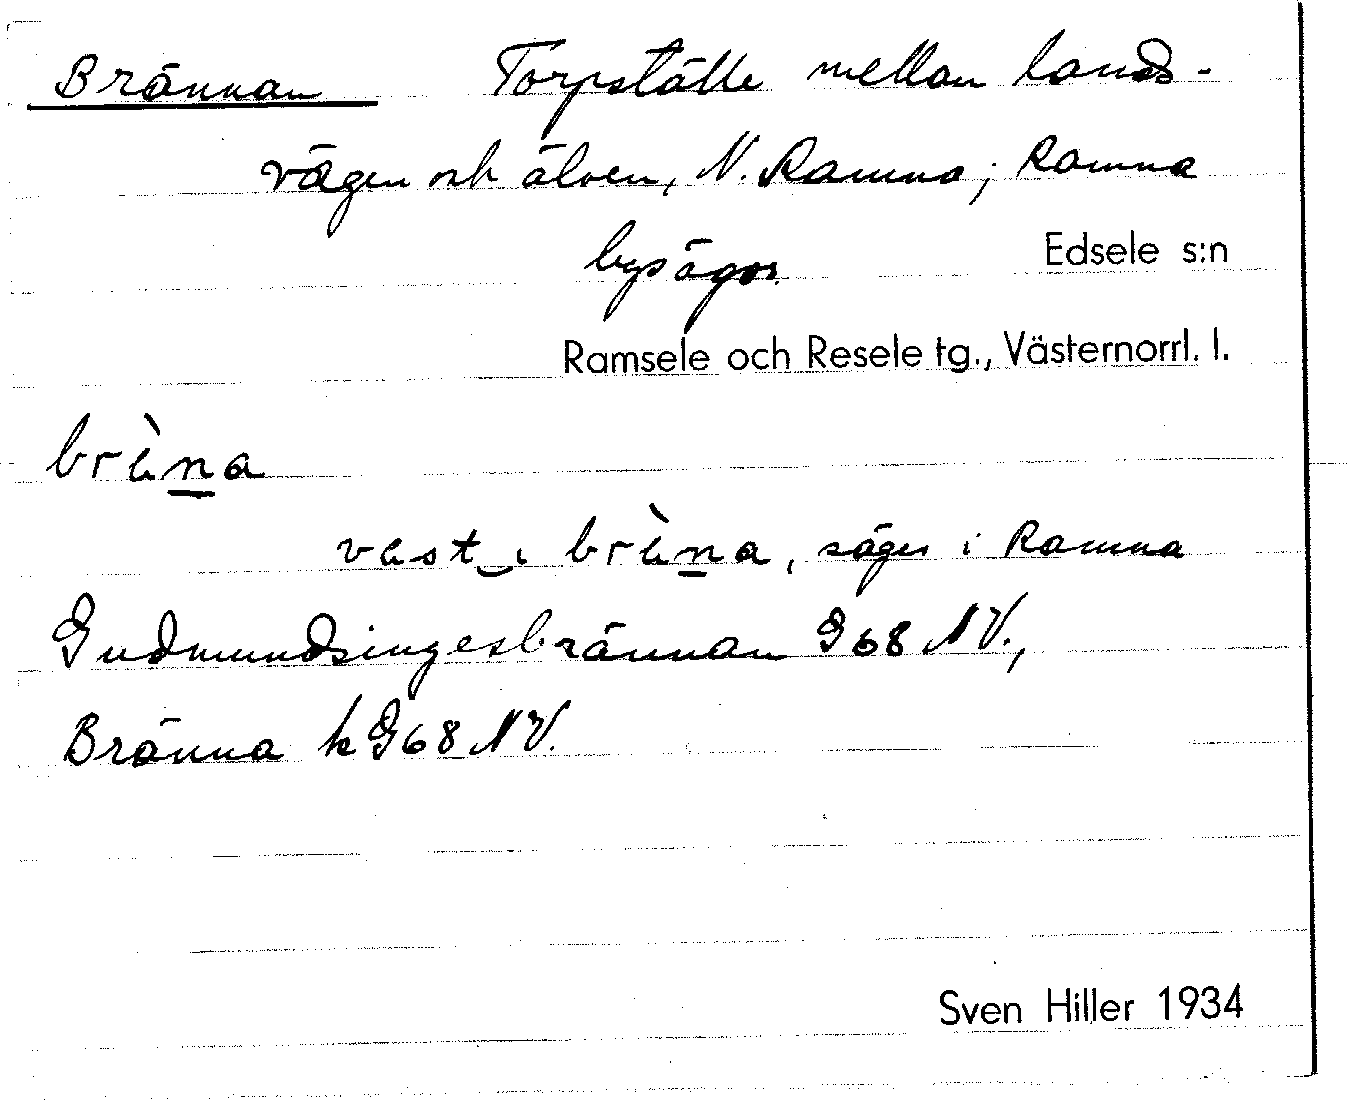 Brännan Torpställe mellan lands-
vägen och älven, N. Ramna; Ramna
bysägor. Edsele s:n
Ramsele och Resele tg., Västernorrl. l.
brὲn̲a
vɛst‿ı brὲn̲a, säges i Ramna
Gudmundsingesbrännan G68 NV.,
Bränna k G68 NV.
Sven Hiller 1934